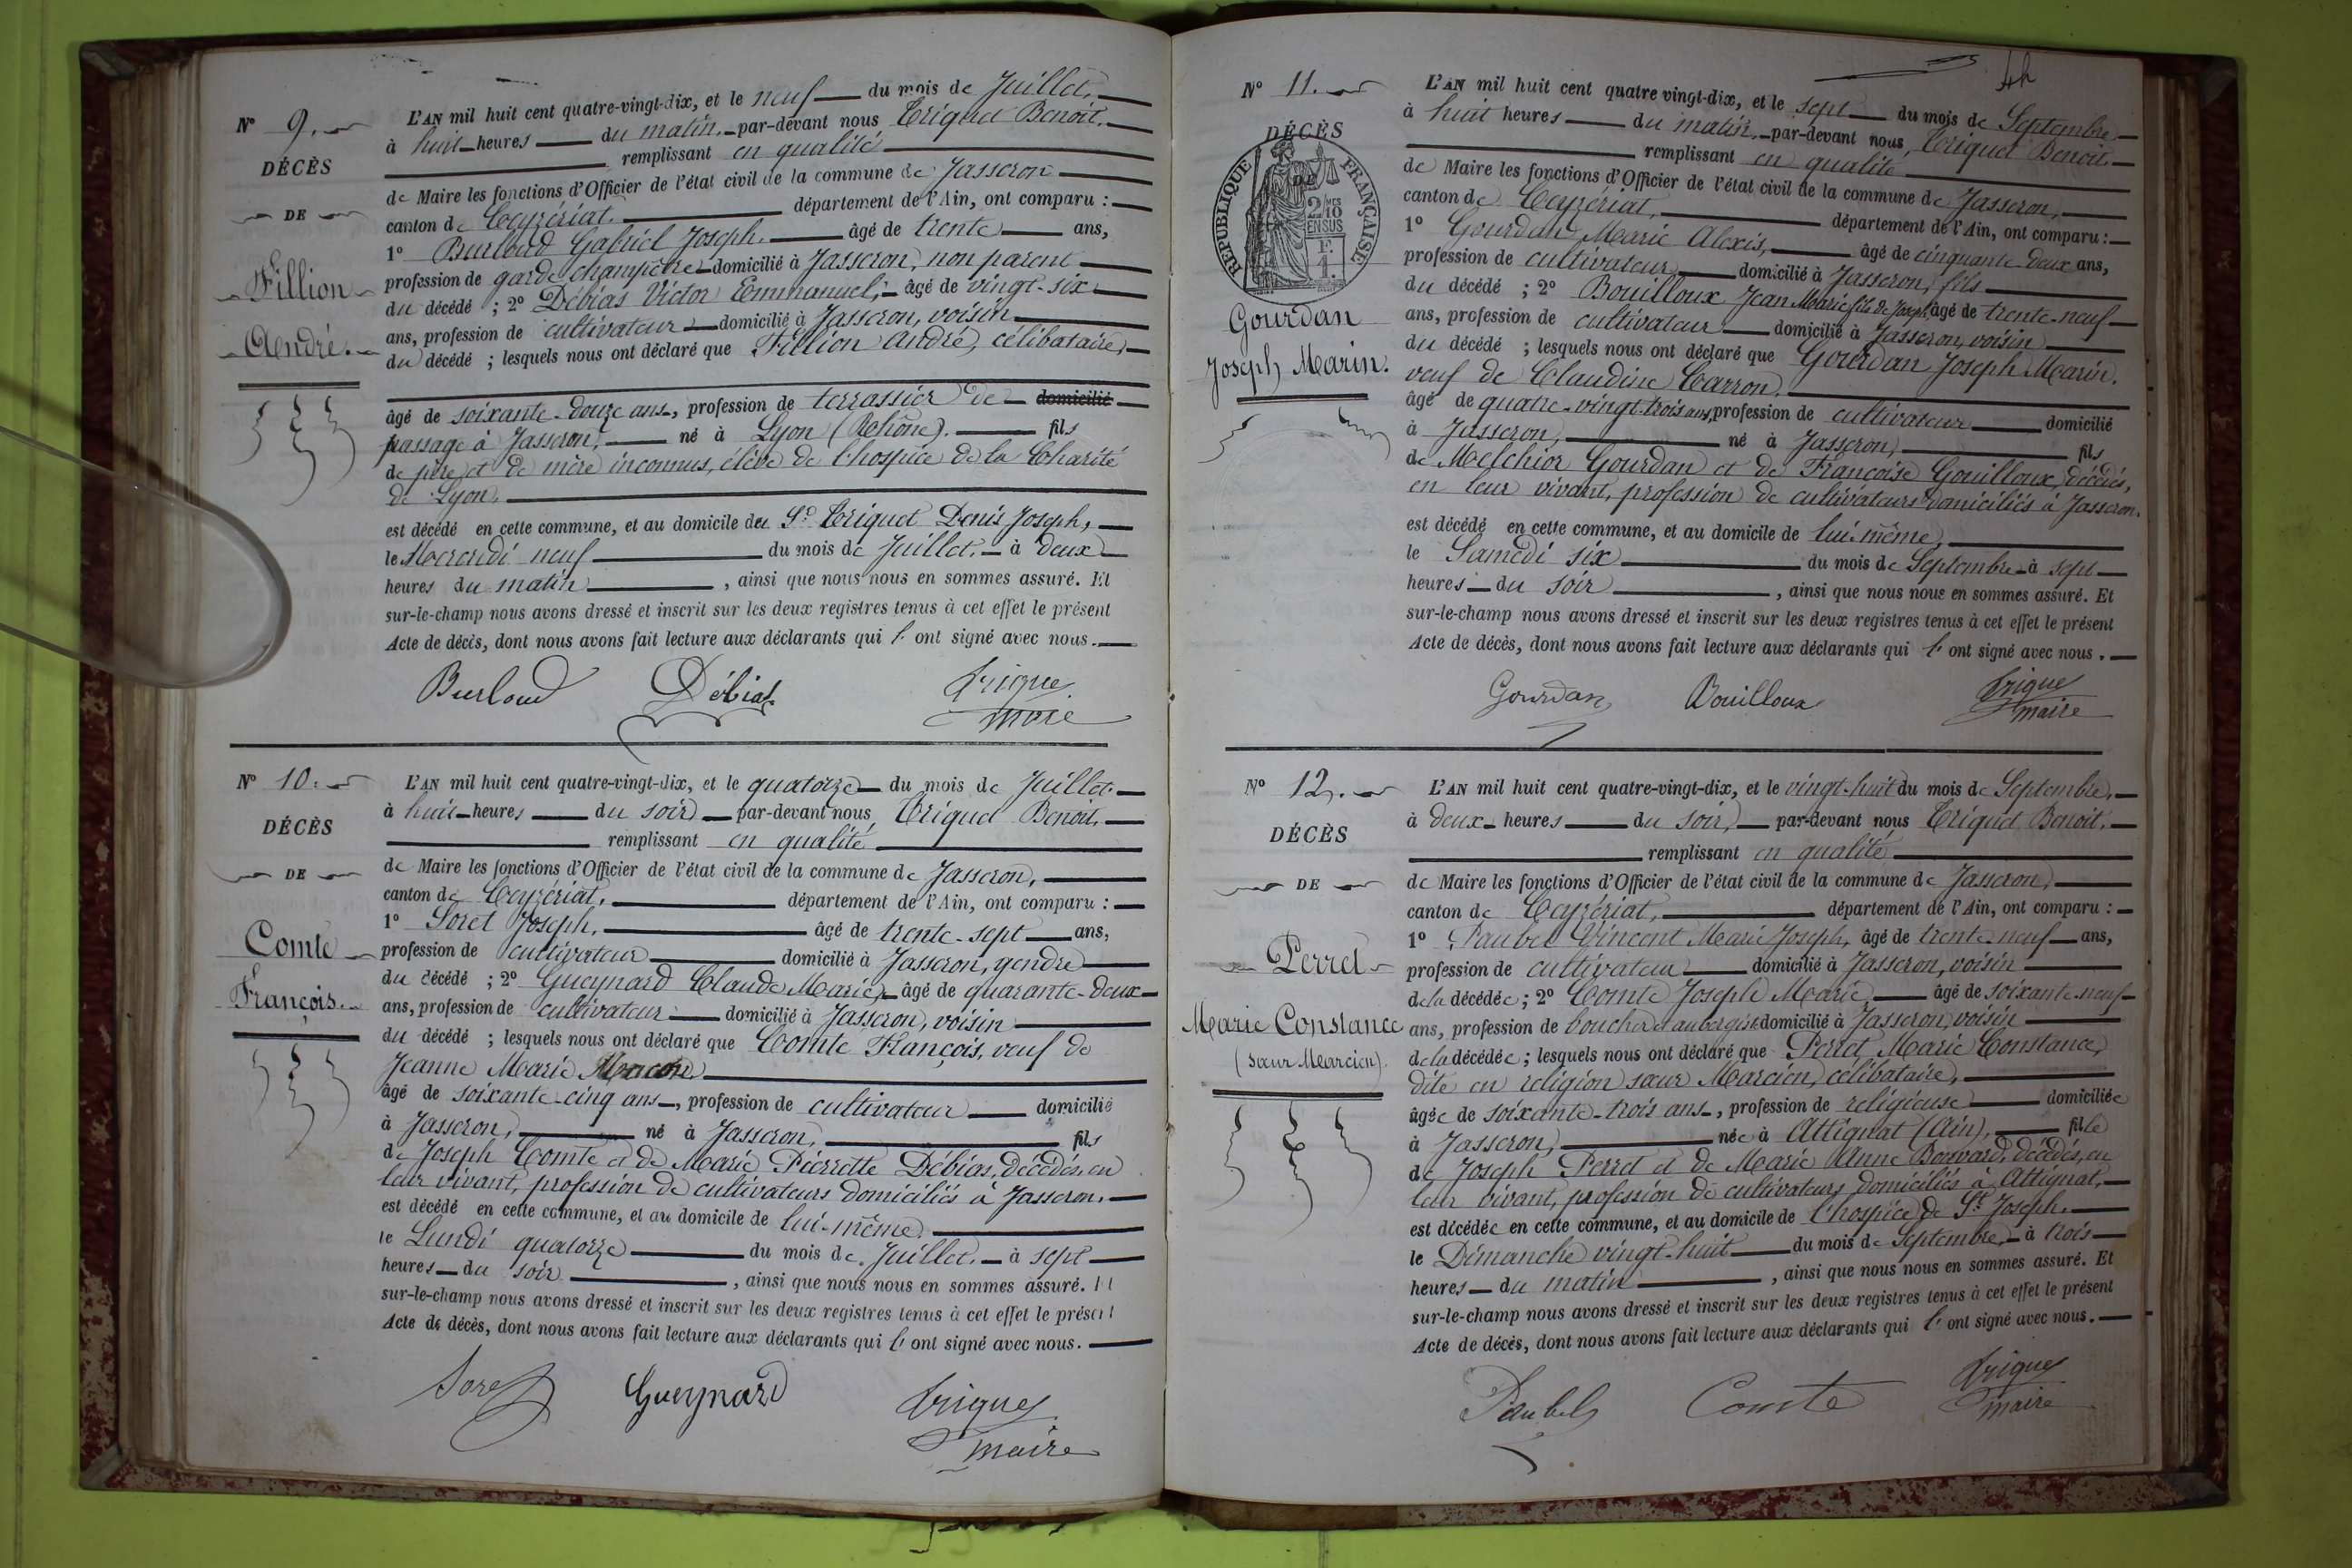 N° 9.
DÉCÈS
DE
Fillion
André.
L'AN mil huit cent quatre-vingt-dix, et le neuf du mois de Juillet,
à huit heures du matin, par-devant nous Triquet Benoit,
remplissant en qualité
de Maire les fonctions d'Officier de l'état civil de la commune de Jasseron
canton de Ceyzériat, département de l'Ain, ont comparu :
1° Burloud Gabriel Joseph, âgé de trente ans,
profession de garde champêtre domicilié à Jasseron, non parent
du décédé ; 2° Débias Victor Emmanuel, âgé de vingt-six
ans, profession de cultivateur domicilié à Jasseron, voisin
du décédé ; lesquels nous ont déclaré que Fillion André, célibataire,
âgé de soixante-douze ans, profession de terrassier de domicilié
passage à Jasseron, né à Lyon (Rhône). fils
de père et de mère inconnus, élève de l'hospice de la Charité
de Lyon,
est décédé en cette commune, et au domicile du Sr Triquet Denis Joseph,
le Mercredi neuf du mois de Juillet, à deux
heures du matin, ainsi que nous nous en sommes assuré. Et
sur-le-champ nous avons dressé et inscrit sur les deux registres tenus à cet effet le présent
Acte de décès, dont nous avons fait lecture aux déclarants qui l'ont signé avec nous.
Burloud Débias Triquet
maire
N° 10.
DÉCÈS
DE
Comte
François.
L'AN mil huit cent quatre-vingt-dix, et le quatorze du mois de Juillet
à huit heures du soir par-devant nous Triquet Benoit,
remplissant en qualité
de Maire les fonctions d'Officier de l'état civil de la commune de Jasseron,
canton de Ceyzériat, département de l'Ain, ont comparu :
1° Soret Joseph, âgé de trente-sept ans,
profession de cultivateur domicilié à Jasseron, gendre
du décédé ; 2° Gueynard Claude Marie, âgé de quarante-deux
ans, profession de cultivateur domicilié à Jasseron, voisin
du décédé ; lesquels nous ont déclaré que Comte François, veuf de
Jeanne Marie
âgé de soixante-cinq ans, profession de cultivateur domicilié
à Jasseron, né à Jasseron, fils
de Joseph Comte et de Marie Pierrette Débias, décédés, en
leur vivant, profession de cultivateurs domiciliés à Jasseron,
est décédé en cette commune, et au domicile de lui-même
le Lundi quatorze du mois de Juillet, à sept
heures du soir, ainsi que nous nous en sommes assuré. Et
sur-le-champ nous avons dressé et inscrit sur les deux registres tenus à cet effet le présent
Acte de décès, dont nous avons fait lecture aux déclarants qui l'ont signé avec nous.
Soret Gueynard Triquet
maire
N° 11.
DÉCÈS
DE
RÉPUBLIQUE FRANÇAISE
2/10 EN SUS
Gourdan
Joseph Marin.
L'AN mil huit cent quatre vingt-dix, et le sept du mois de Septembre
à huit heures du matin, par-devant nous Triquet Benoit
remplissant en qualité
de Maire les fonctions d'Officier de l'état civil de la commune de Jasseron,
canton de Ceyzériat, département de l'Ain, ont comparu :
1° Gourdan Marie Alexis, âgé de cinquante-deux ans,
profession de cultivateur domicilié à Jasseron, fils
du décédé ; 2° Bouilloux Jean Marie fils de Joseph, âgé de trente-neuf
ans, profession de cultivateur domicilié à Jasseron, voisin
du décédé ; lesquels nous ont déclaré que Gourdan Joseph Marin,
veuf de Claudine Carron,
âgé de quatre-vingt-trois ans, profession de cultivateur domicilié
à Jasseron, né à Jasseron, fils
de Melchior Gourdan et de Françoise Gouilloux, décédés,
en leur vivant, profession de cultivateurs domiciliés à Jasseron,
est décédé en cette commune, et au domicile de lui-même,
le Samedi six du mois de Septembre à sept
heures du soir, ainsi que nous nous en sommes assuré. Et
sur-le-champ nous avons dressé et inscrit sur les deux registres tenus à cet effet le présent
Acte de décès, dont nous avons fait lecture aux déclarants qui l'ont signé avec nous.
Gourdan Bouilloux Triquet
maire
N° 12.
DÉCÈS
DE
Perret
Marie Constance
(sœur Marcien).
L'AN mil huit cent quatre-vingt-dix, et le vingt-huit du mois de Septembre,
à deux heures du soir, par-devant nous Triquet Benoit,
remplissant en qualité
de Maire les fonctions d'Officier de l'état civil de la commune de Jasseron,
canton de Ceyzériat, département de l'Ain, ont comparu :
1° Paubel Vincent Marie Joseph, âgé de trente-neuf ans,
profession de cultivateur domicilié à Jasseron, voisin
de la décédée ; 2° Comte Joseph Marie, âgé de soixante-neuf
ans, profession de boucher et aubergiste domicilié à Jasseron, voisin
de la décédée ; lesquels nous ont déclaré que Perret Marie Constance,
dite en religion sœur Marcien, célibataire,
âgée de soixante-trois ans, profession de religieuse domiciliée
à Jasseron, née à Attignat (Ain), fille
de Joseph Perret et de Marie Anne Bouvard, décédés, en
leur vivant, profession de cultivateurs domiciliés à Attignat,
est décédée en cette commune, et au domicile de l'hospice de St Joseph,
le Dimanche vingt-huit du mois de Septembre, à trois
heures du matin, ainsi que nous nous en sommes assuré. Et
sur-le-champ nous avons dressé et inscrit sur les deux registres tenus à cet effet le présent
Acte de décès, dont nous avons fait lecture aux déclarants qui l'ont signé avec nous.
Paubel Comte Triquet
maire